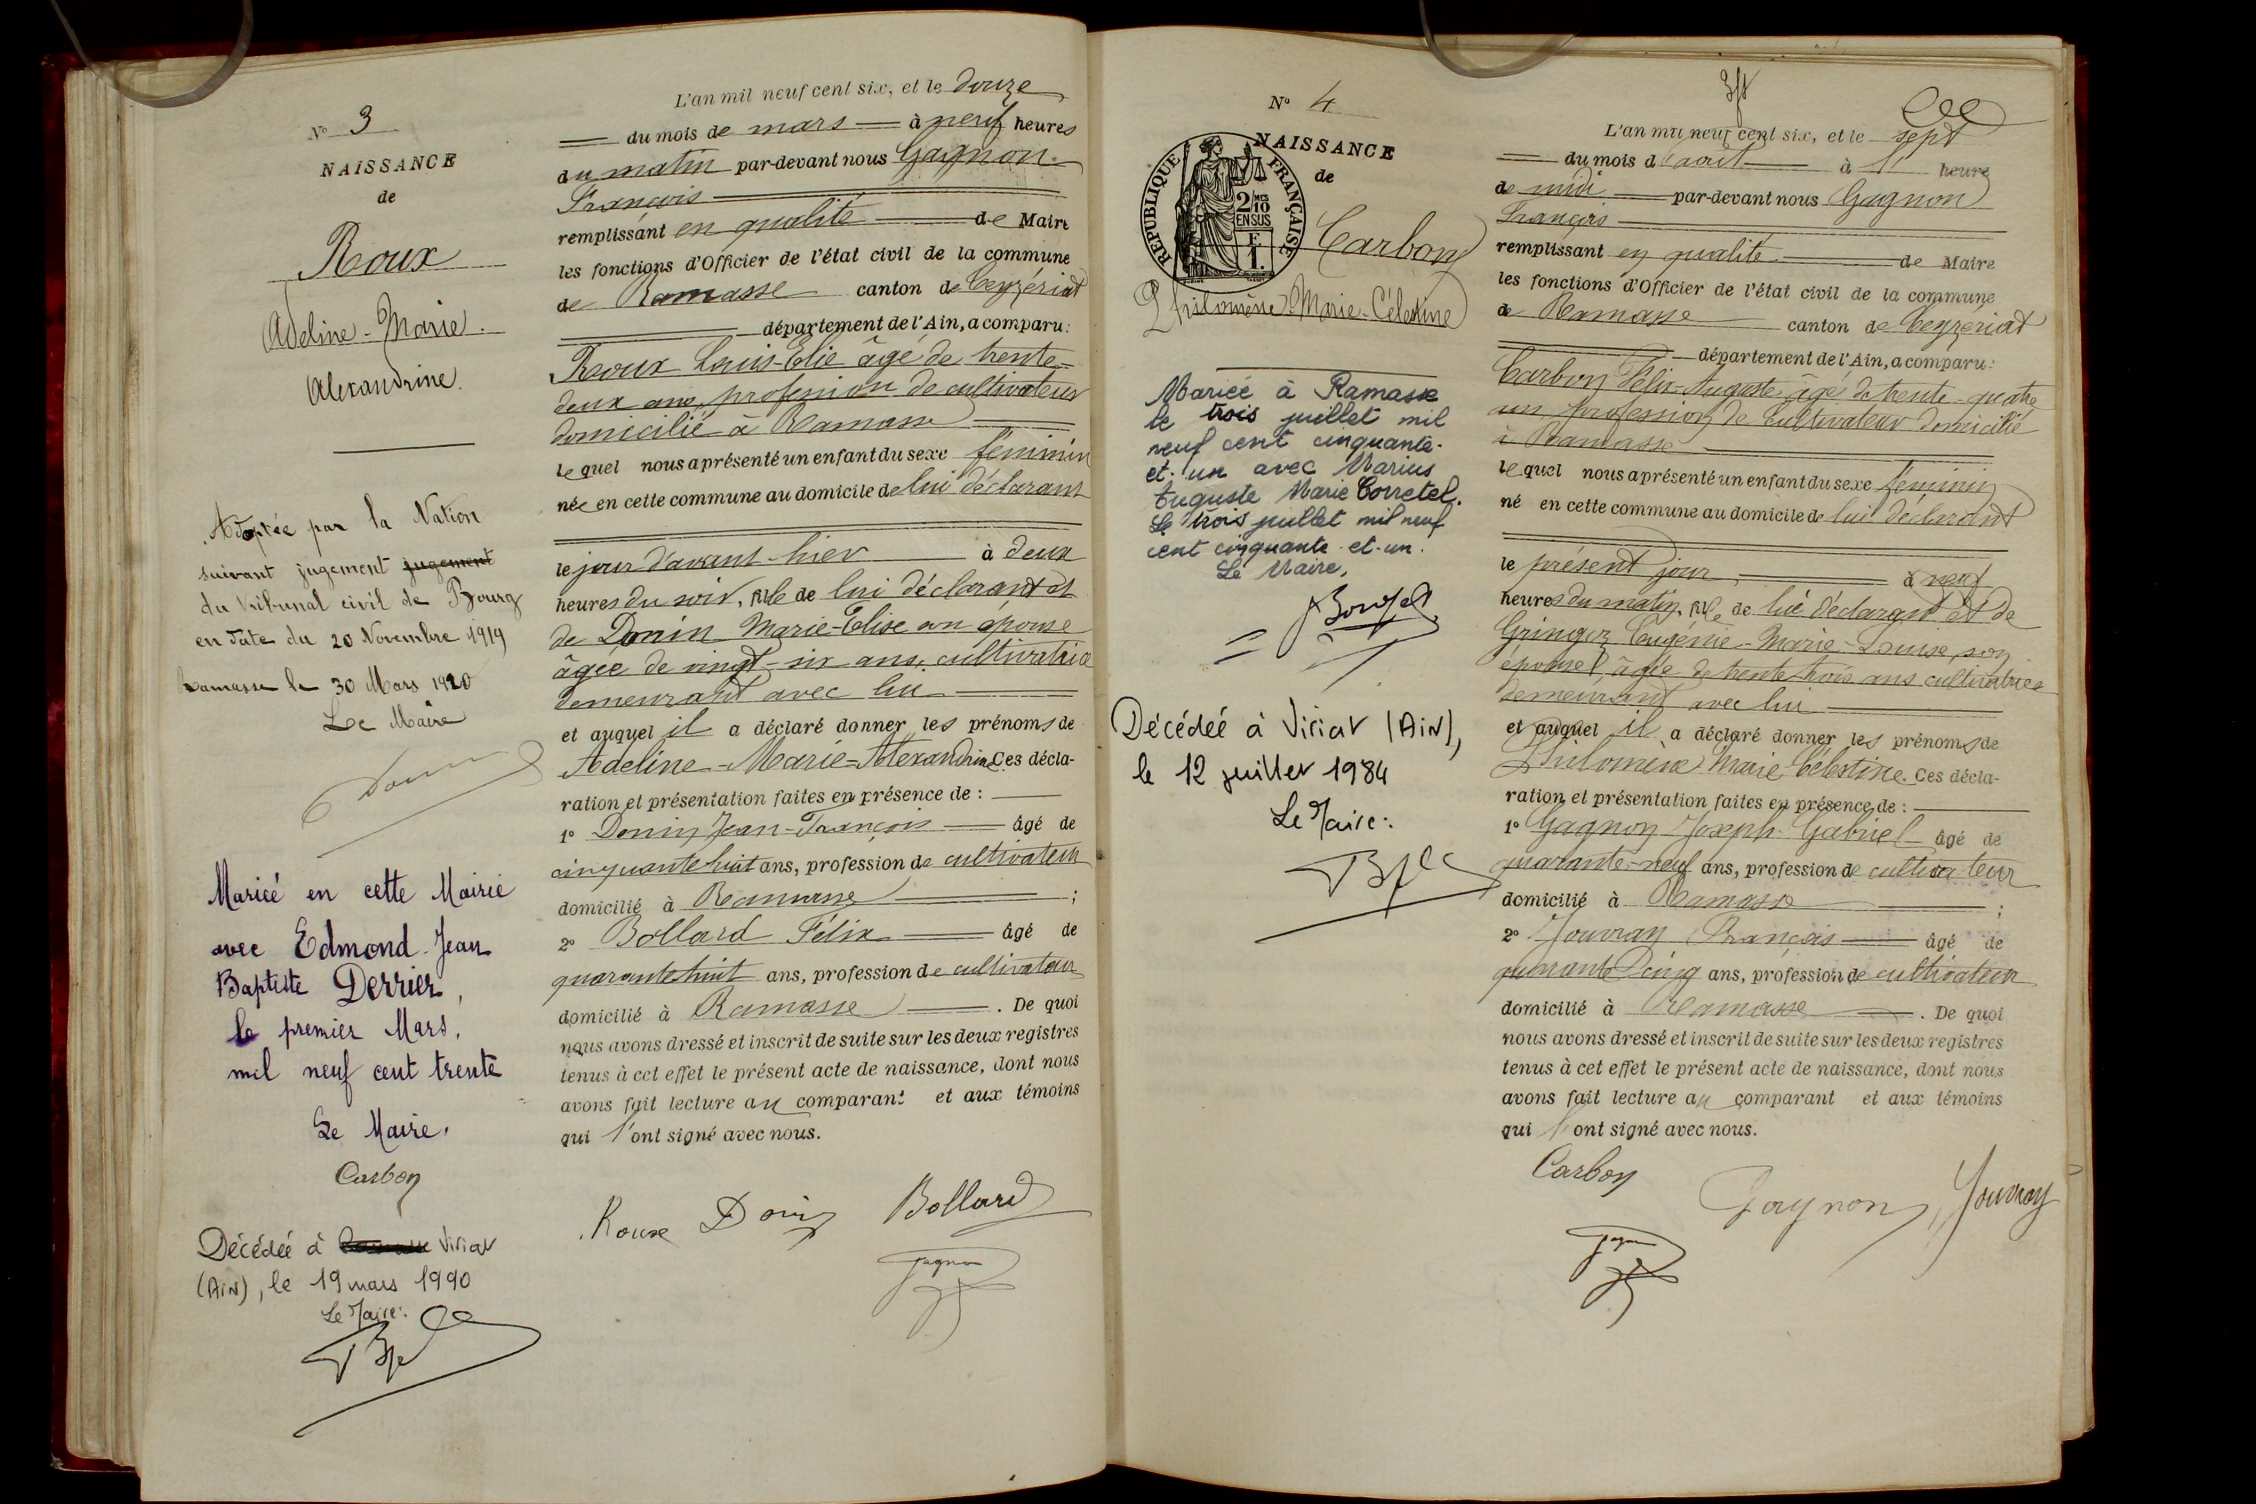 N° 3
NAISSANCE
de
Roux
Adeline-Marie
Alexandrine.
Adoptée par la Nation
suivant jugement jugement
du tribunal civil de Bourg
en date du 20 Novembre 1919
Ramasse le 30 Mars 1920
Le Maire
Mariée en cette Mairie
avec Edmond Jean
Baptiste Derrier,
le premier Mars,
mil neuf cent trente
Le Maire.
Carbon
Décédée à Viriat
(Ain), le 19 mars 1990
Le Maire:
L'an mil neuf cent six, et le douze
du mois de mars à neuf heures
du matin par-devant nous Gagnon
François
remplissant en qualité de Maire
les fonctions d'Officier de l'état civil de la commune
de Ramasse canton de Ceyzériat
département de l'Ain, a comparu:
Roux Louis-Elie âgé de trente-
deux ans, profession de cultivateur
domicilié à Ramasse
lequel nous a présenté un enfant du sexe féminin
née en cette commune au domicile de lui déclarant
le jour d'avant-hier à deux
heures du soir, fille de lui déclarant et
de Donin Marie-Elise son épouse
âgée de vingt-six ans, cultivatrice
demeurant avec lui
et auquel il a déclaré donner les prénoms de
Adeline-Marie-Alexandrine Ces décla-
ration et présentation faites en présence de :
1° Donin Jean-François âgé de
cinquante huit ans, profession de cultivateur
domicilié à Ramasse ;
2° Bollard Félix âgé de
quarante huit ans, profession de cultivateur
domicilié à Ramasse . De quoi
nous avons dressé et inscrit de suite sur les deux registres
tenus à cet effet le présent acte de naissance, dont nous
avons fait lecture au comparant et aux témoins
qui l'ont signé avec nous.
Roux Donin Bollard
Gagnon
N° 4
NAISSANCE
de
RÉPUBLIQUE FRANÇAISE
2 MES 10
EN SUS
F.
1.
Carbon
Philomène-Marie-Célestine
Mariée à Ramasse
le trois juillet mil
neuf cent cinquante-
et-un avec Marius
Auguste Marie Corretel.
Le trois juillet mil neuf
cent cinquante-et-un.
Le Maire,
Décédeé à Viriat (Ain),
le 12 juillet 1984
Le Maire:
L'an mil neuf cent six, et le sept
du mois d'août à 1 heure
de midi par-devant nous Gagnon
François
remplissant en qualité de Maire
les fonctions d'Officier de l'état civil de la commune
de Ramasse canton de Ceyzériat
département de l'Ain, a comparu:
Carbon Félix-Auguste âgé de trente-quatre
ans profession de cultivateur domicilié
à Ramasse
lequel nous a présenté un enfant du sexe féminin
né en cette commune au domicile de lui déclarant
le présent jour à neuf
heures du matin, fille de lui déclarant et de
Gringoz Eugénie-Marie-Louise, son
épouse, âgée de trente trois ans cultivatrice
demeurant avec lui
et auquel il a déclaré donner les prénoms de
Philomène Marie Célestine. Ces décla-
ration et présentation faites en présence de :
1° Gagnon Joseph Gabriel âgé de
quarante-neuf ans, profession de cultivateur
domicilié à Ramasse ;
2° Jouvray François âgé de
quarante cinq ans, profession de cultivateur
domicilié à Ramasse . De quoi
nous avons dressé et inscrit de suite sur les deux registres
tenus à cet effet le présent acte de naissance, dont nous
avons fait lecture au comparant et aux témoins
qui l'ont signé avec nous.
Carbon Gagnon Jouvray
Gagnon